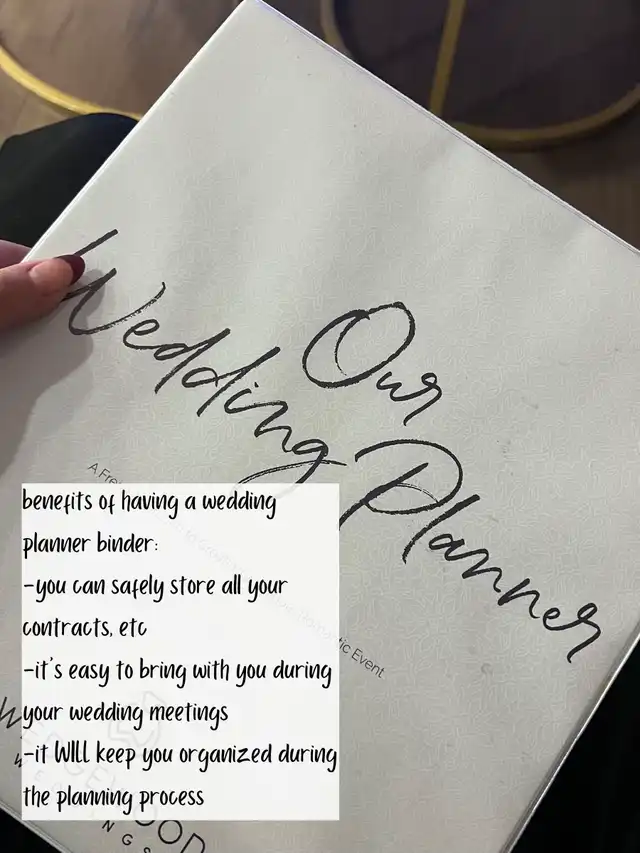 Our
Wedding Planner
A
tic Event
benefits of having a wedding
planner binder:
-you can safely store all your
contracts, etc
-it's easy to bring with you during
your wedding meetings
-it WILL keep you organized during
the planning process